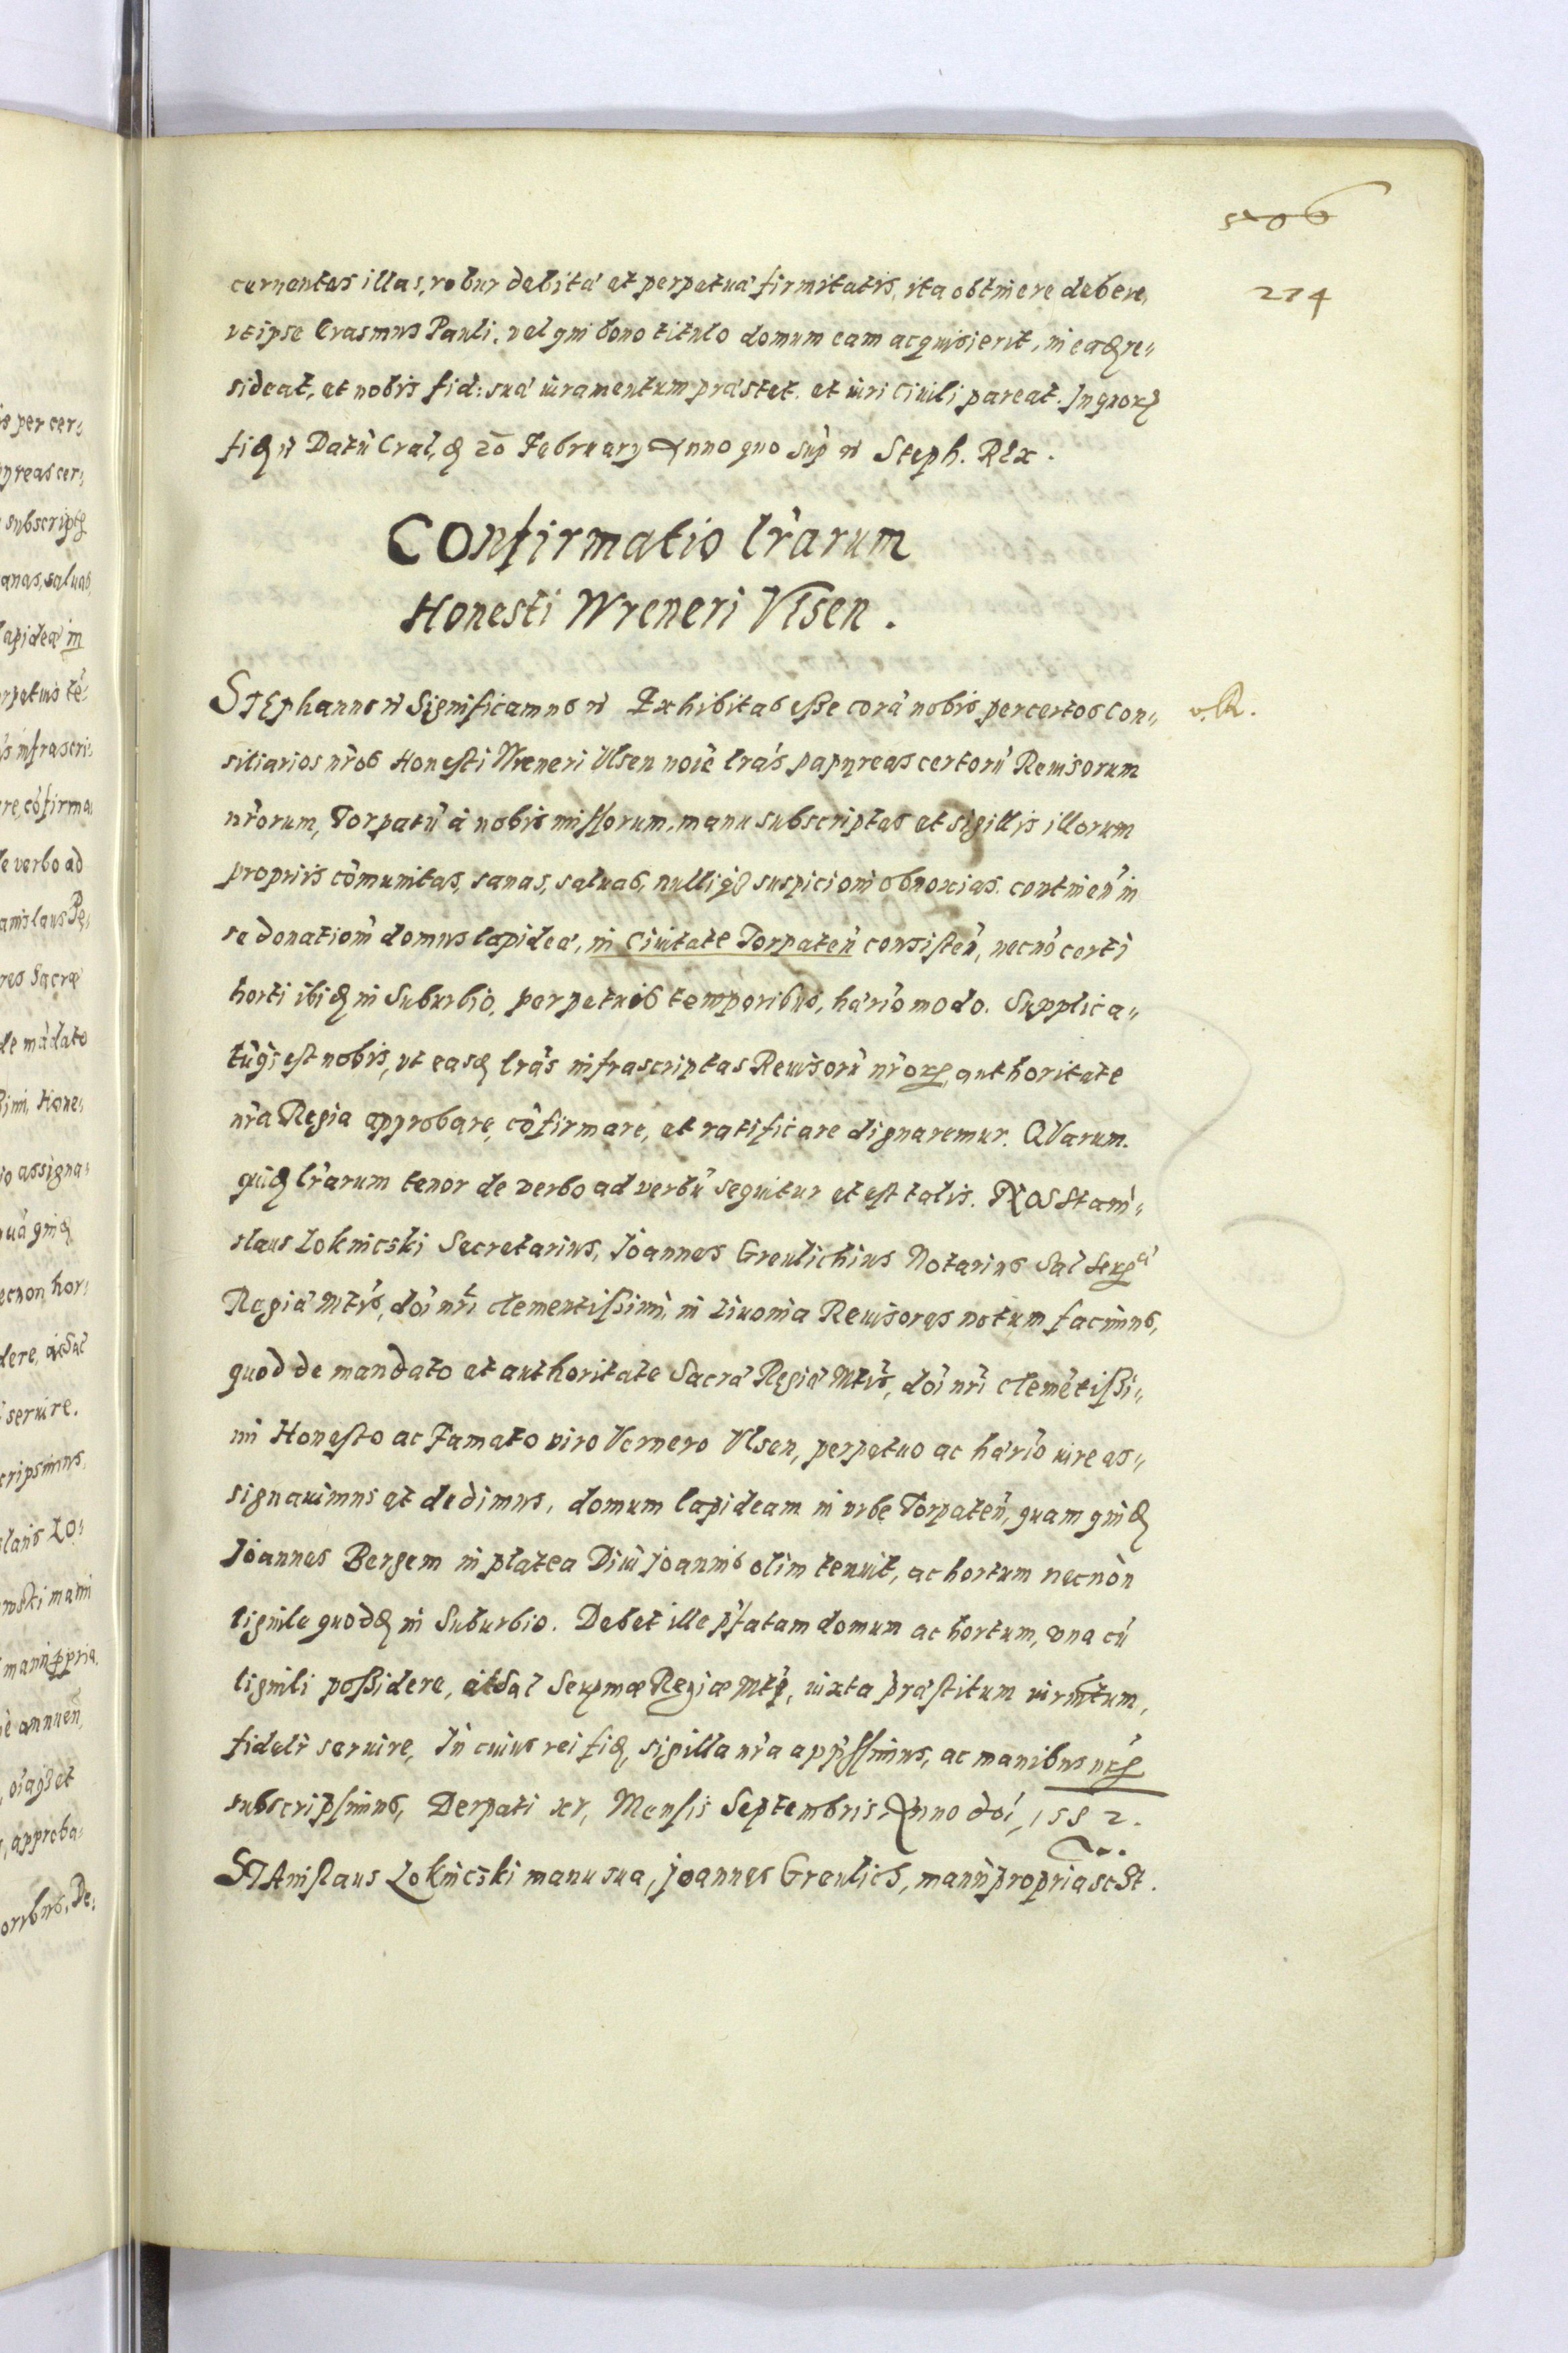 5706
274
cernentes illas, robur debitâ et perpetuâ firmitatis, ita obtinere debere,
vt ipse Erasmus Pauli, vel qui bono titulo domum eam acquisierit, in eadꝫ re„
sideat, et nobis fid: suâ iuramentum prastet. et iuri Ciuili pareat. In quorꝫ
fidꝫ ꝛc Datũ Cral, ꝫ 20 February Anno quo supˀ ꝛc Steph. Rex.
COnfirmatio lrˀarum
Honesti Wreneri Vlsen.
STEphanus ꝛc Significamus ꝛc Exhibitas esse corã nobis per certos Con„
v. R.
siliarios nrˀos Honesti Wreneri Vlsen noîe lrãs papyreas certorũ Reuisorum
nrˀorum, Torpatũ â nobis missorum, manu subscriptas et sigillis illorum
propriis cõmunitas, sanas, saluas, nulliqꝫ suspicioni obnoxias. continenˀ in
se donationˀ domus lapidea, in Ciuitate Torpatenˀ consistenˀ, necnõ certi
horti ibidꝫ in Suburbio, perpetuis temporibus, hærˀio modo. Supplica„
tũqꝫ est nobis, vt easdꝫ lrãs infrascriptas Reuisorũ nrˀorꝫ, authoritate
nrˀa Regia approbare, cõfirmare, et ratificare dignaremur. QVarum.
quidꝫ lrˀarum tenor de verbo ad verbũ sequitur et est talis. NOS Stani„
slaus Loknicski Secretarius, Joannes Greulichius Notarius Sac̃ Serꝫᵃ
Regiâ Mtis, doĩ nrĩ clementissimi, in Liuonia Reuisores notum facimus,
quod de mandato et authoritate Sacrâ Regiâ Mtis, doĩ nrĩ clemẽtissi„
mi Honesto ac Famato viro Vernero Vlsen, perpetuo ac hærˀio iure as„
signauimus et dedimus, domum lapideam in vrbe Torpatenˀ, quam quidꝫ
Joannes Bergem in platea Diui Joannis olim tenuit, ac hortum necnon
lignile quoddꝫ in Suburbio. Debet ille pˀfatam domum ac hortum, vna cũ
lignili possidere, at Sac̃ Serꝫmæ Regiæ Mti, iuxta prâstitum iurmˀtum,
fidelr̃ seruire, In cuius rei fidꝫ, sigilla nrˀa appˀssimus, ac manibus nrˀꝫ
subscripsimus, Derpati xv, Mensis Septembris, Anno doĩ, 1582.
STAnislaus Loknicski manu sua, Joannes Greulich, manũ propria sc̃t.